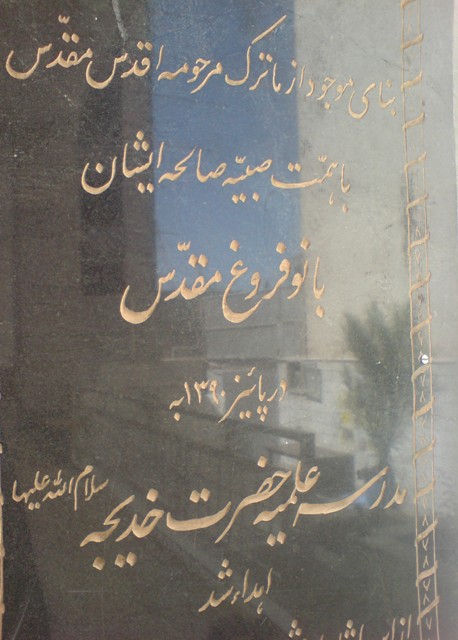 بنای موجود از ماترک مرحومه اقدس مقدّس
با همّت صبیّه صالحه ایشان
بانو فروغ مقدّس
در پائیز ۱۳۹۰ به
مدرسه علمیه حضرت خدیجه سلام الله علیها
اهداء شد